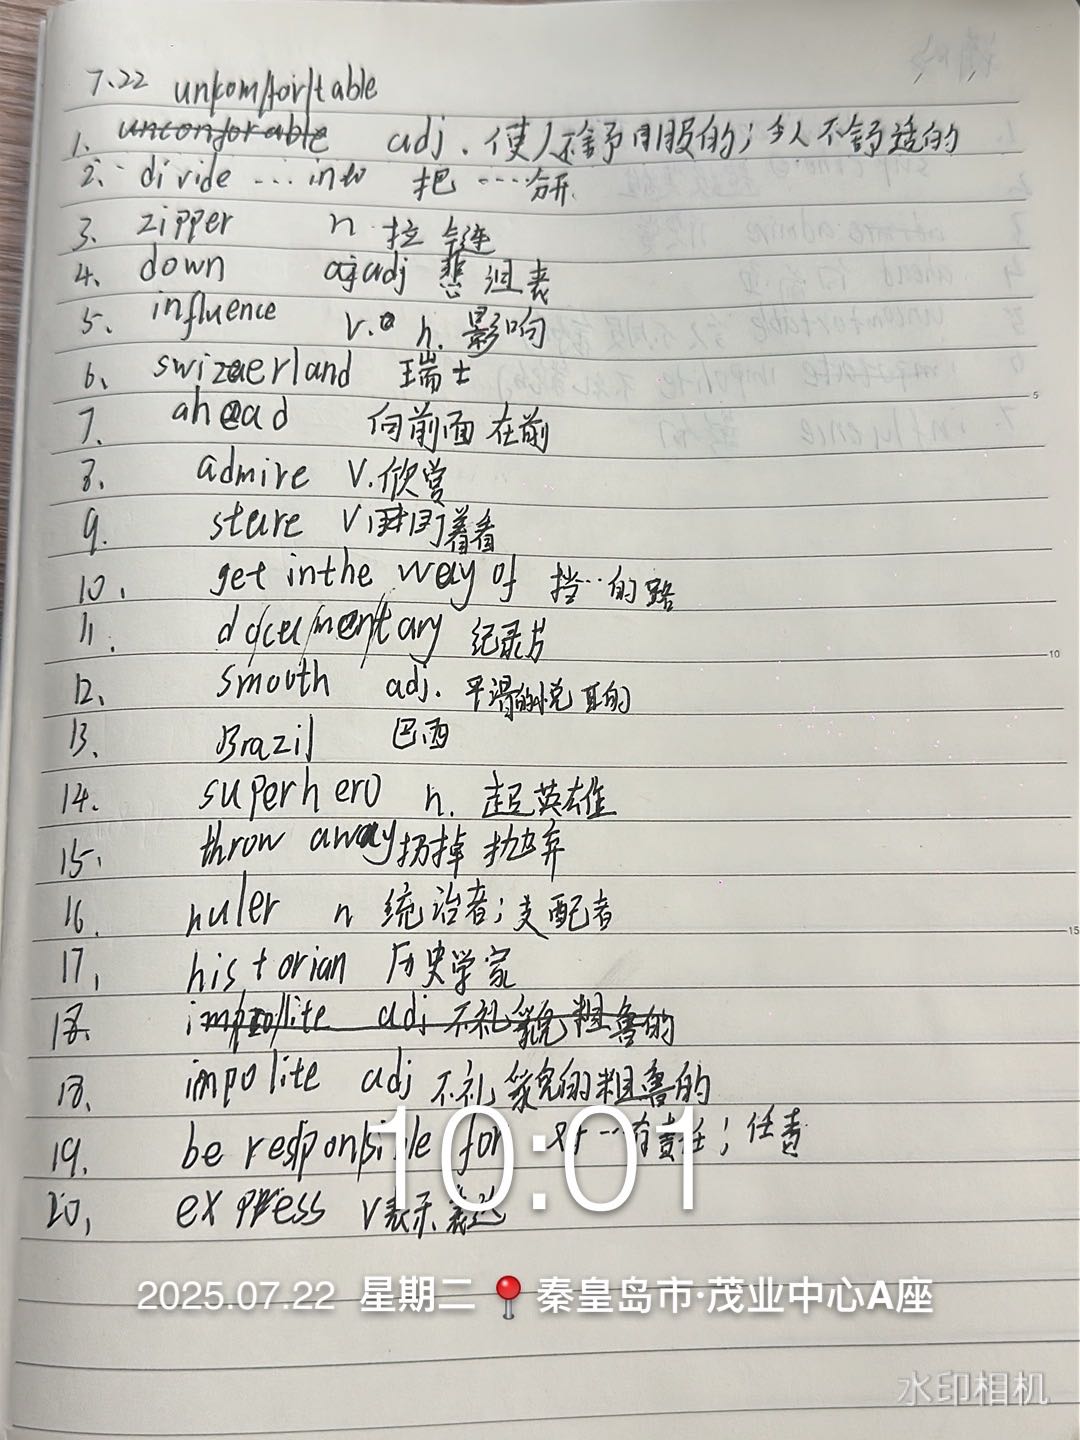 7.22 un/com/for/table
1. unconforable adj. 使人不舒服的；令人不舒适的
2. divide ... into 把……分开
3. zipper n 拉链
4. down adj 悲沮丧
5. influence v. n. 影响
6. swizaerland 瑞士
7. ahead 向前面 在前
8. admire v. 欣赏
9. stare v 盯着看
10. get in the way of 挡…的路
11. do/cu/men/tary 纪录片
12. smooth adj. 平滑的悦耳的
13. Brazil 巴西
14. superhero n. 超英雄
15. throw away 扔掉 抛弃
16. ruler n 统治者；支配者
17. historian 历史学家
18. im/po/lite adj 不礼貌粗鲁的
18. impolite adj 不礼貌的粗鲁的
19. be res/pon/sible for 对…有责任；任责
20. express v 表示 表达
10:01
2025.07.22 星期二 秦皇岛市·茂业中心A座
水印相机